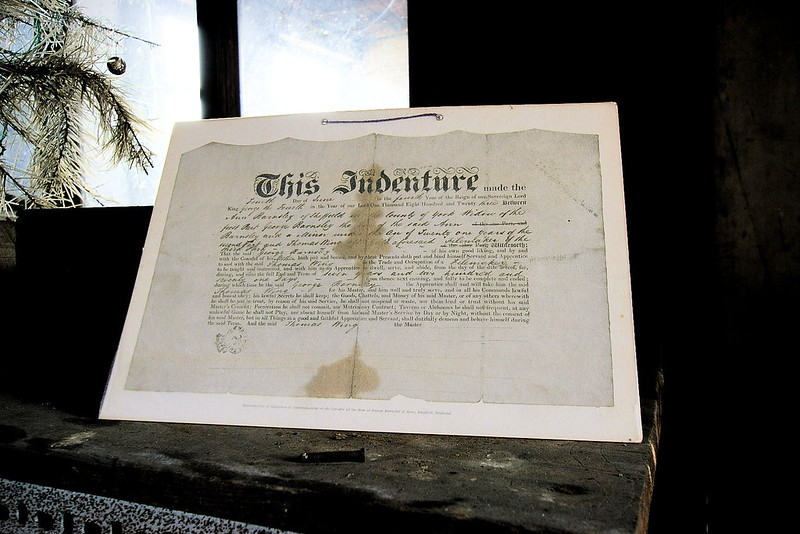 This Indenture made the
Fourth Day of June in the fourth Year of the Reign of our Sovereign Lord
King George the Fourth in the Year of our Lord One Thousand Eight Hundred and Twenty three Between
Ann Barnsley of Sheffield County of York Widow of the
first Part George Barnsley the of the said Ann
Barnsley and a Minor under the Age of Twenty one Years of the
second Part and Thomas Wing of aforesaid Filemaker of the
third Part Witnesseth;
That the said George Barnsley of his own good liking, and by and
with the Consent of his Mother, hath put and bound, and by these Presents doth put and bind himself Servant and Apprentice
to and with the said Thomas Wing in the Trade and Occupation of a Filemaker
to be taught and instructed, and with him as an Apprentice to dwell, serve, and abide, from the day of the date hereof, for,
during, and until the full End and Term of Seven Years and two hundred and
Twenty one Days from thence next ensuing, and fully to be complete and ended;
during which time he the said George Barnsley the Apprentice shall and will take him the said
Thomas Wing for his Master, and him well and truly serve, and in all his Commands lawful
and honest obey; his lawful Secrets he shall keep; the Goods, Chattels, and Money of his said Master, or of any others wherewith
he shall be put in trust, by reason of his said Service, he shall not misspend or waste, nor them lend or trust without his said
Master's Consent; Fornication he shall not commit, nor Matrimony Contract; Taverns or Alehouses he shall not frequent, at any
unlawful Game he shall not Play, nor absent himself from his said Master's Service by Day or by Night, without the consent of
his said Master, but in all Things as a good and faithful Apprentice and Servant, shall dutifully demean and behave himself during
the said Term. And the said Thomas Wing the Master